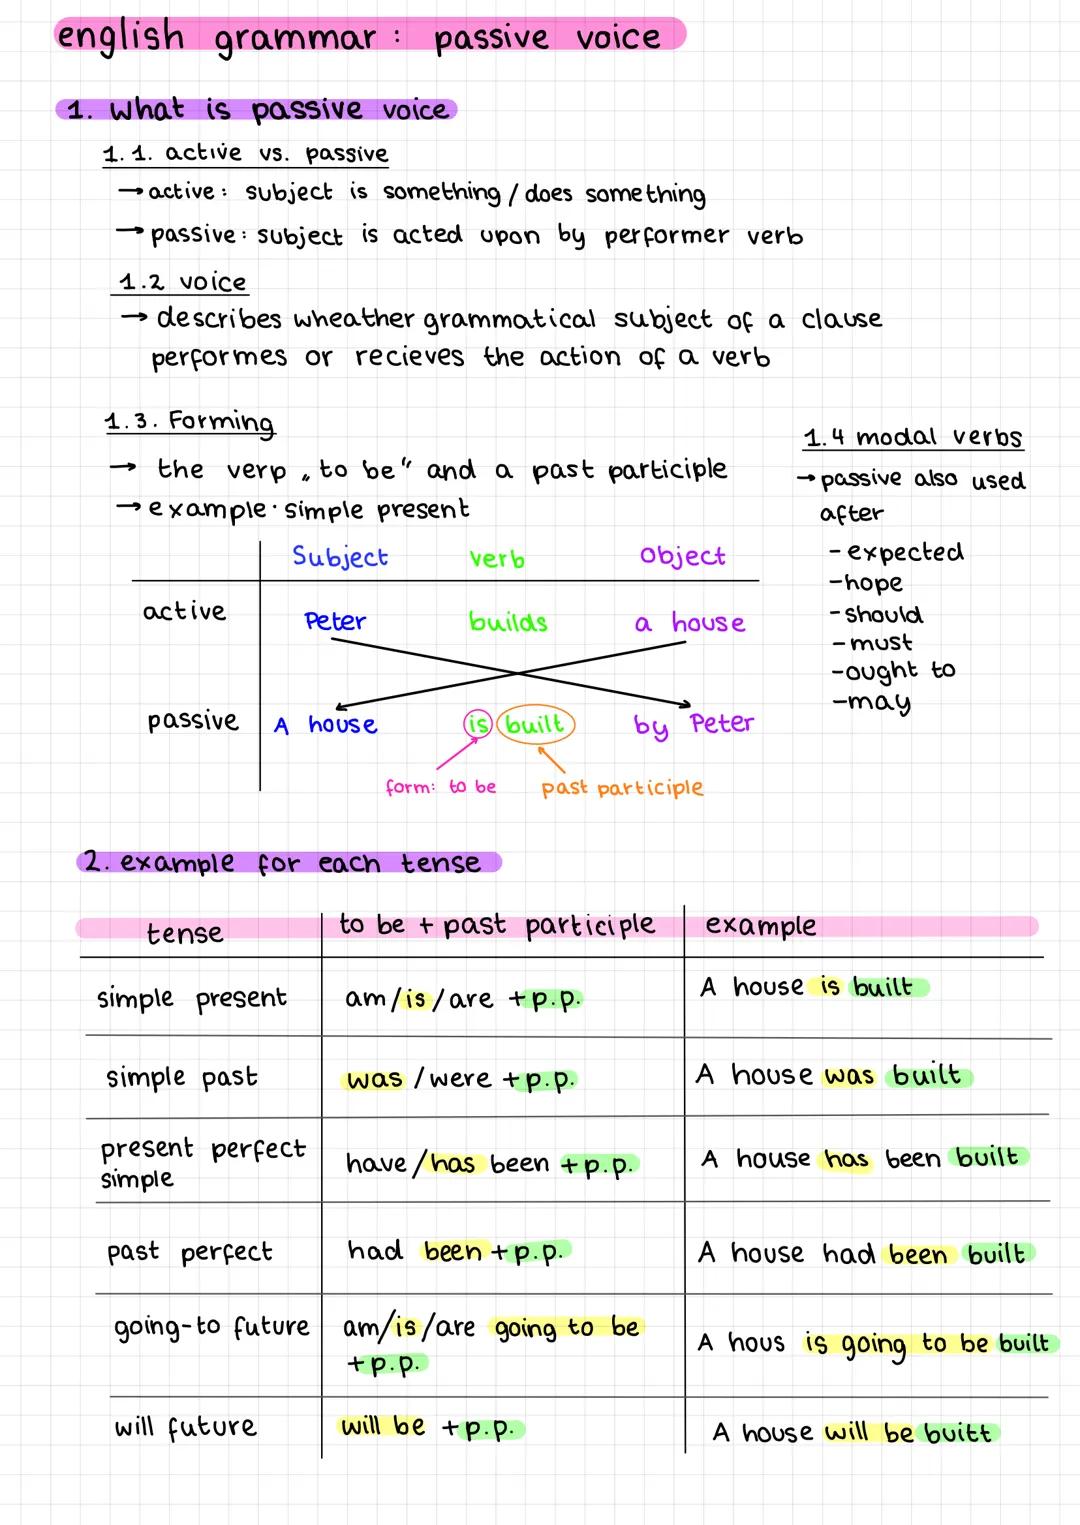 english grammar: passive voice
1. what is passive voice
1.1. active vs. passive
→ active: subject is something/does something
→ passive: subject is acted upon by performer verb
1.2 voice
→ describes wheather grammatical subject of a clause
performes or recieves the action of a verb
1.3. Forming
→ the verp „to be" and a past participle
→ example: simple present
1.4 modal verbs
→ passive also used
after
- expected
- hope
- should
- must
- ought to
- may
Subject verb Object
active Peter builds a house
passive A house is built by Peter
form: to be past participle
2. example for each tense
tense to be + past participle example
simple present am/is/are + p.p. A house is built
simple past was/were + p.p. A house was built
present perfect
simple have/has been + p.p. A house has been built
past perfect had been + p.p. A house had been built
going-to future am/is/are going to be
+ p.p. A hous is going to be built
will future will be + p.p. A house will be buitt